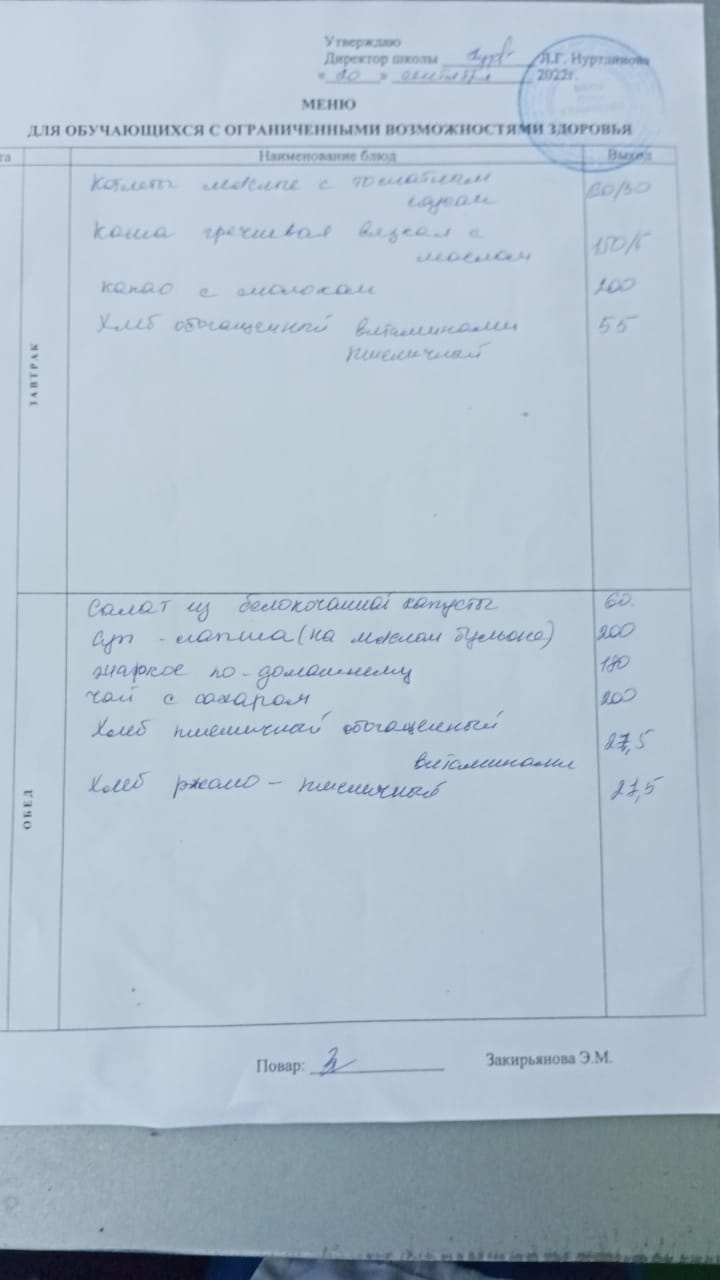 Утверждаю
Директор школы Л.Г. Нуртдинова
«20» сентября 2022г.
МЕНЮ
ДЛЯ ОБУЧАЮЩИХСЯ С ОГРАНИЧЕННЫМИ ВОЗМОЖНОСТЯМИ ЗДОРОВЬЯ
та Наименование блюд Выход
ЗАВТРАК
Котлеты мясные с томатным 60/30
соусом
Каша гречневая вязкая с 150/5
маслом
какао с молоком 200
Хлеб обогащенный витаминами 55
пшеничный
ОБЕД
Салат из белокочанной капусты 60.
Суп - лапша (на мясном бульоне) 200
жаркое по-домашнему 180
чай с сахаром 200
Хлеб пшеничный обогащенный 27,5
витаминами
Хлеб ржано - пшеничный 27,5
Повар: Закирьянова Э.М.